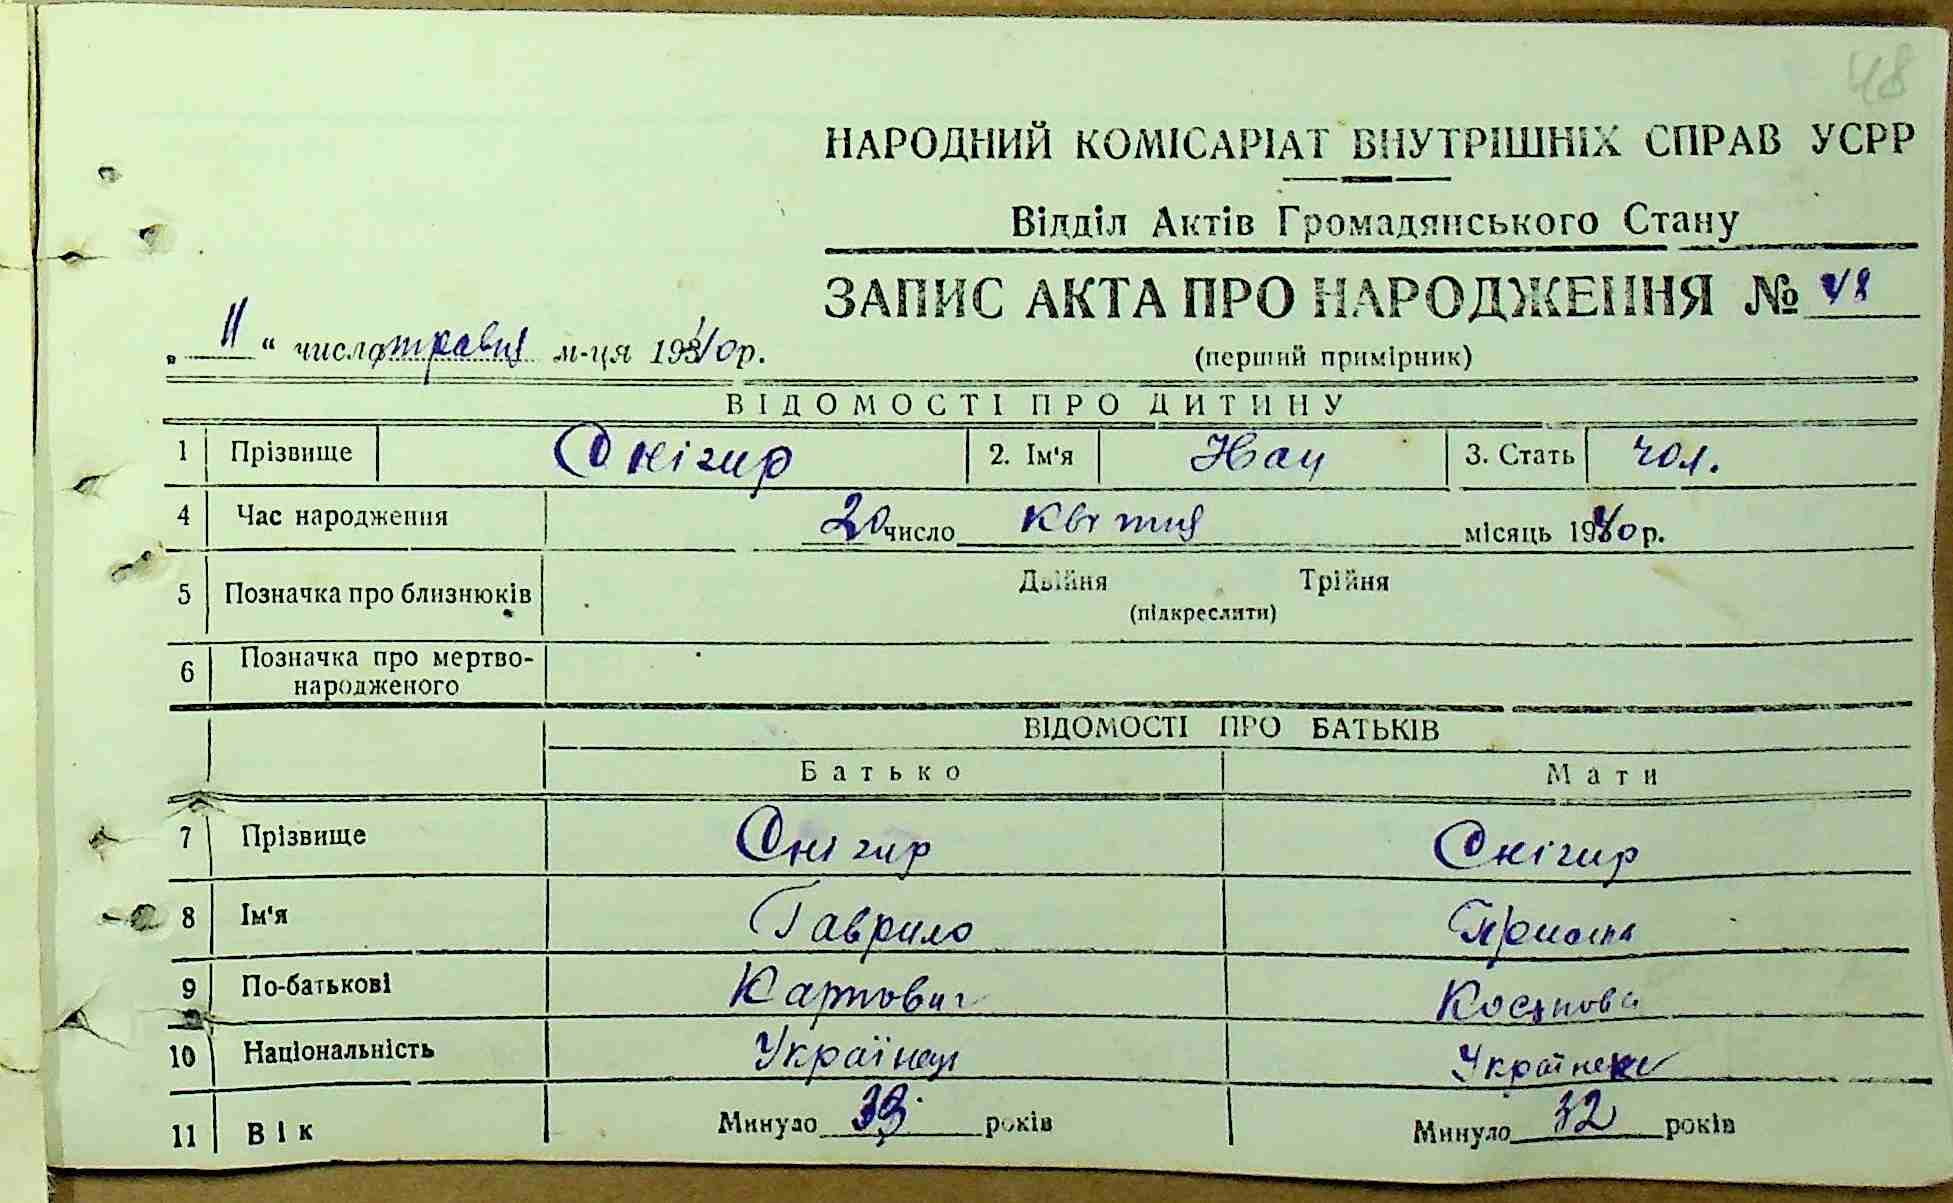 48
НАРОДНИЙ КОМІСАРІАТ ВНУТРІШНІХ СПРАВ УСРР
Відділ Актів Громадянського Стану
ЗАПИС АКТА ПРО НАРОДЖЕННЯ № 48
„ 11 “ числа травця м-ця 1940 р.
(перший примірник)
ВІДОМОСТІ ПРО ДИТИНУ
1 Прізвище Снігир 2. Ім'я 3. Стать чол.
4 Час народження 20 число квітня місяць 1940 р.
5 Позначка про близнюків Двійня Трійня
(підкреслити)
6 Позначка про мертво-
народженого
ВІДОМОСТІ ПРО БАТЬКІВ
Батько Мати
7 Прізвище Снігир Снігир
8 Ім'я Гаврило
9 По-батькові Карпович
10 Національність Українець Українка
11 Вік Минуло 39 років Минуло 32 років